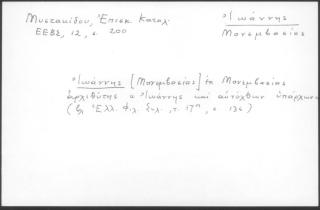 Μυστακίδου, Ἐπισκ Καταλ.
ΕΕΒΣ, 12, σ. 200
Ἰωάννης
Μονεμβασίας
Ἰωάννης [Μονεμβασίας] ἐκ Μονεμβασίας
ἀρχιθύτης ὁ Ἰωάννης καὶ αὐτόχθων ὑπάρχων
(βλ Ἑλλ. Φιλ. Συλ., τ. 17ος, σ 136)